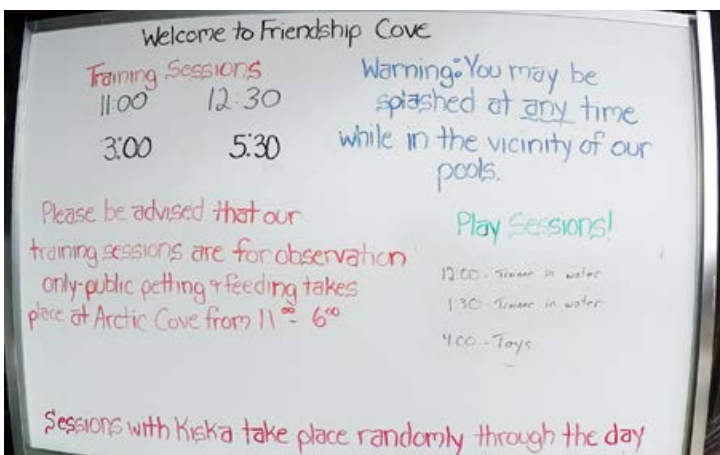 Welcome to Friendship Cove
Training Sessions
11:00 12:30
3:00 5:30
Warning: You may be
splashed at any time
while in the vicinity of our
pools.
Please be advised that our
training sessions are for observation
only-public petting & feeding takes
place at Arctic Cove from 11⁰⁰ - 6⁰⁰
Play Sessions!
12:00 - Trainer in water
1:30 - Trainer in water
4:00 - Toys
Sessions with Kiska take place randomly through the day